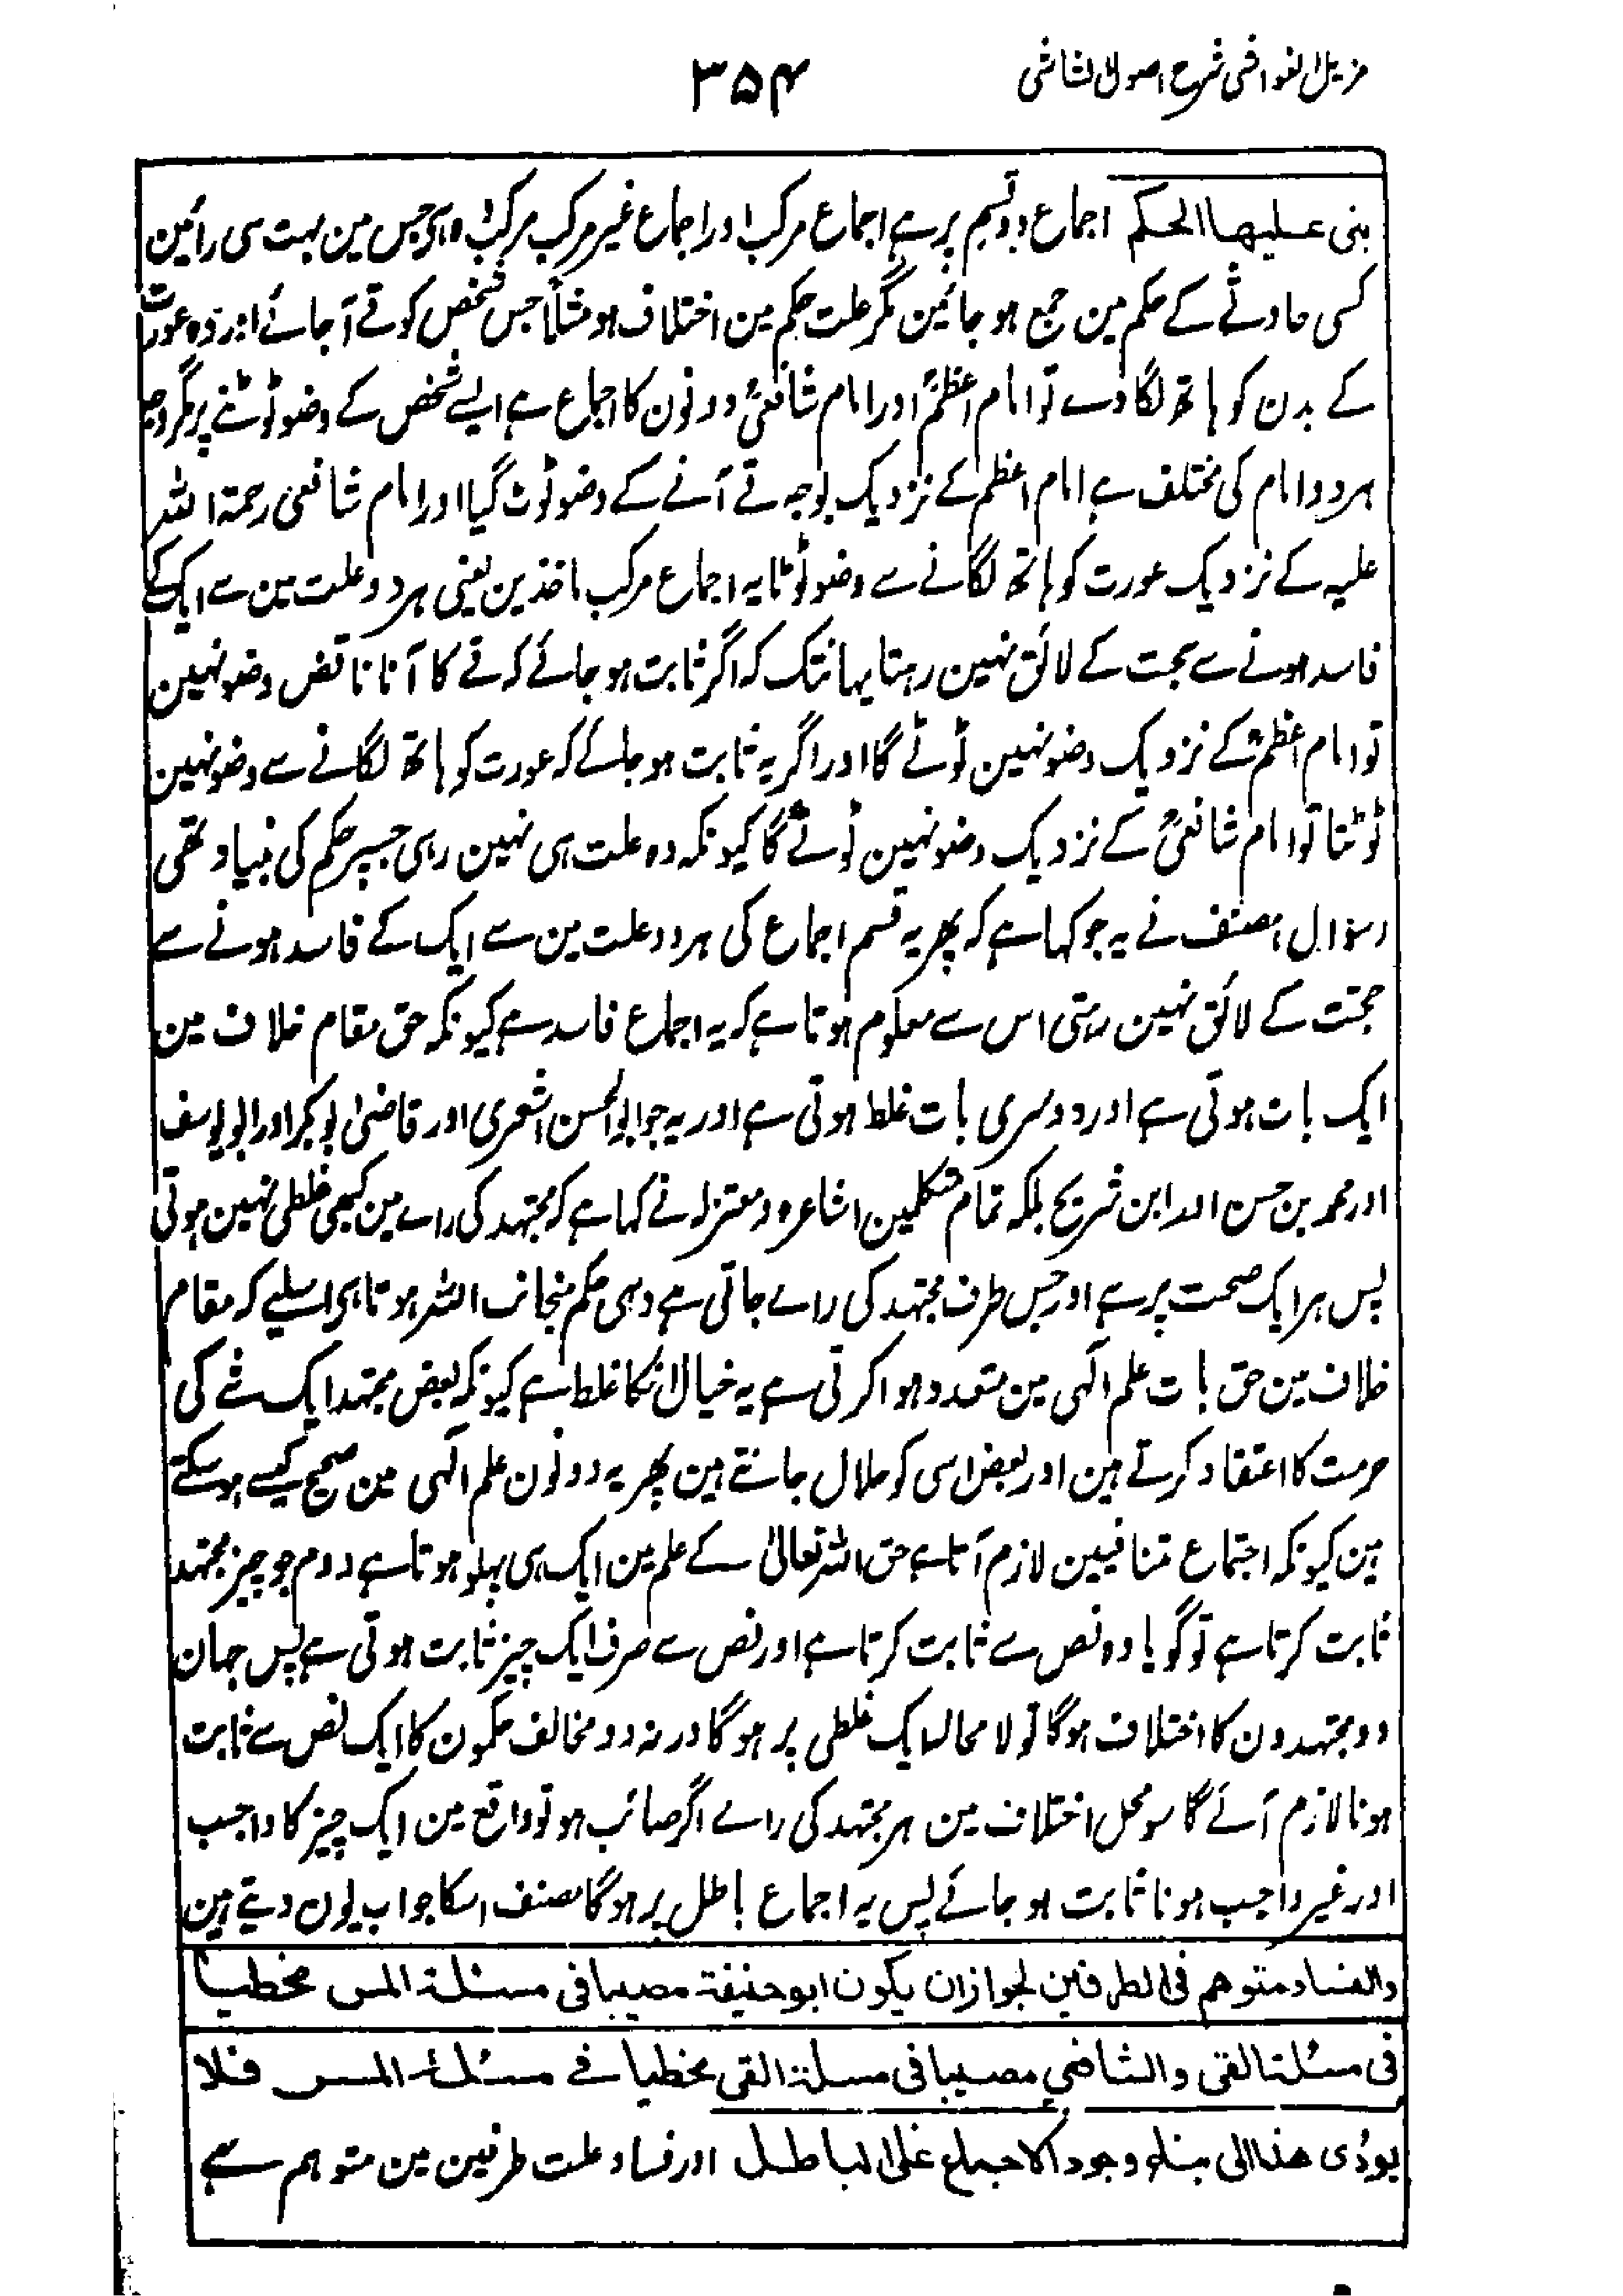 مزیل الغواشی شرح اصول الشاشی
۳۵۴
بنی علیھا الحکم اجماع دو قسم پر ہے اجماع مرکب اور اجماع غیر مرکب مرکب وہ ہی جس مین بہت سی رائین
کسی حادثے کے حکم مین جمع ہو جائین مگر علت حکم مین اختلاف ہو مثلاً جس شخص کو قے آجائے اور وہ عورت
کے بدن کو ہاتھ لگا دے تو امام اعظمؒ اور امام شافعیؒ دونون کا اجماع ہے ایسے شخص کے وضو ٹوٹنے پر مگر وجہ
ہر دو امام کی مختلف ہے امام اعظم کے نزدیک بوجہ قے آنے کے وضو ٹوٹ گیا اور امام شافعی رحمۃ اللہ
علیہ کے نزدیک عورت کو ہاتھ لگانے سے وضو ٹوٹا یہ اجماع مرکب ماخذین یعنی ہر دو علت مین سے ایک کے
فاسد ہونے سے حجت کے لائق نہین رہتا یہانتک کہ اگر ثابت ہو جائے کہ قے کا آنا ناقض وضو نہین
تو امام اعظمؒ کے نزدیک وضو نہین ٹوٹے گا اور اگر یہ ثابت ہو جائے کہ عورت کو ہاتھ لگانے سے وضو نہین
ٹوٹتا تو امام شافعیؒ کے نزدیک وضو نہین ٹوٹے گا کیونکہ وہ علت ہی نہین رہی جسپر حکم کی بنیاد تھی
(سوال) مصنف نے یہ جو کہا ہے کہ پھر یہ قسم اجماع کی ہر دو علت مین سے ایک کے فاسد ہونے سے
حجت کے لائق نہین رہتی اس سے معلوم ہوتا ہے کہ یہ اجماع فاسد ہے کیونکہ حق مقام خلاف مین
ایک بات ہوتی ہے اور دوسری بات غلط ہوتی ہے اور یہ جو ابوالحسن اشعری اور قاضی ابوبکر اور ابو یوسف
اور محمد بن حسن اور ابن شریح بلکہ تمام متکلمین اشاعرہ و معتزلہ نے کہا ہے کہ مجتہد کی راے مین کبھی غلطی نہین ہوتی
پس ہر ایک صحت پر ہے اور جس طرف مجتہد کی راے جاتی ہے وہی حکم منجانب اللہ ہوتا ہی اسلیے کہ مقام
خلاف مین حق بات علم الٰہی مین متعدد ہوا کرتی ہے یہ خیال انکا غلط ہے کیونکہ بعض مجتہد ایک شے کی
حرمت کا اعتقاد کرتے ہین اور بعض اسی کو حلال جانتے ہین پھر یہ دونون علم الٰہی مین صحیح کیسے ہو سکتے
ہین کیونکہ اجتماع متنافیین لازم آتا ہے حق اللہ تعالیٰ کے علم مین ایک ہی پہلو ہوتا ہے دوم جو چیز مجتہد
ثابت کرتا ہے تو گویا وہ نص سے ثابت کرتا ہے اور نص سے صرف ایک چیز ثابت ہوتی ہے پس جہان
دو مجتہدون کا اختلاف ہو گا تو لا محالہ ایک غلطی پر ہو گا ورنہ دو مخالف حکمون کا ایک نص سے ثابت
ہونا لازم آئے گا سو محل اختلاف مین ہر مجتہد کی راے اگر صائب ہو تو واقع مین ایک چیز کا واجب
اور غیر واجب ہونا ثابت ہو جائے پس یہ اجماع باطل پر ہو گا مصنف اسکا جواب یون دیتے ہین
والفساد متوھم فی الطرفین لجواز ان یکون ابو حنیفۃ مصیبا فی مسئلۃ المس مخطیا
فی مسئلۃ القی والشافعی مصیبا فی مسئلۃ القی مخطیا فی مسئلۃ المس فلا
یؤدی ھذا الی بناء وجود الاجماع علی الباطل اور فساد علت طرفین مین متوہم ہے